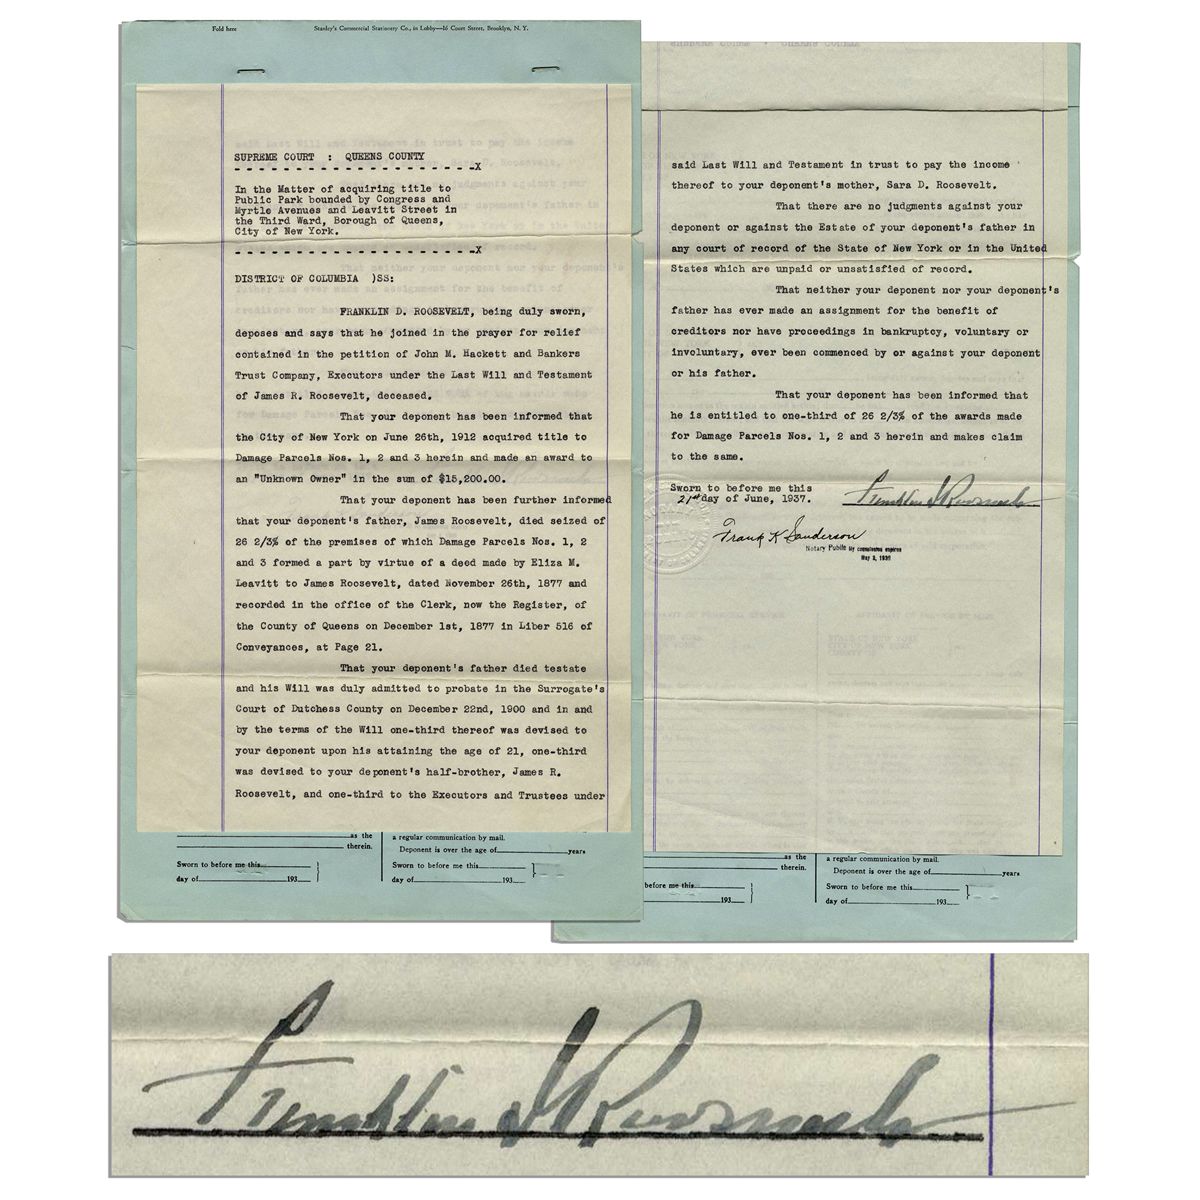 Fold here
Stanley's Commercial Stationery Co., in Lobby—16 Court Street, Brooklyn, N. Y.
SUPREME COURT : QUEENS COUNTY
- - - - - - - - - - - - - - - - - - - - -X
In the Matter of acquiring title to
Public Park bounded by Congress and
Myrtle Avenues and Leavitt Street in
the Third Ward, Borough of Queens,
City of New York.
- - - - - - - - - - - - - - - - - - - - -X
DISTRICT OF COLUMBIA )SS:
FRANKLIN D. ROOSEVELT, being duly sworn,
deposes and says that he joined in the prayer for relief
contained in the petition of John M. Hackett and Bankers
Trust Company, Executors under the Last Will and Testament
of James R. Roosevelt, deceased.
That your deponent has been informed that
the City of New York on June 26th, 1912 acquired title to
Damage Parcels Nos. 1, 2 and 3 herein and made an award to
an "Unknown Owner" in the sum of $15,200.00.
That your deponent has been further informed
that your deponent's father, James Roosevelt, died seized of
26 2/3% of the premises of which Damage Parcels Nos. 1, 2
and 3 formed a part by virtue of a deed made by Eliza M.
Leavitt to James Roosevelt, dated November 26th, 1877 and
recorded in the office of the Clerk, now the Register, of
the County of Queens on December 1st, 1877 in Liber 516 of
Conveyances, at Page 21.
That your deponent's father died testate
and his Will was duly admitted to probate in the Surrogate's
Court of Dutchess County on December 22nd, 1900 and in and
by the terms of the Will one-third thereof was devised to
your deponent upon his attaining the age of 21, one-third
was devised to your deponent's half-brother, James R.
Roosevelt, and one-third to the Executors and Trustees under
as the
therein.
Sworn to before me this
day of 193
a regular communication by mail.
Deponent is over the age of years
Sworn to before me this
day of 193
said Last Will and Testament in trust to pay the income
thereof to your deponent's mother, Sara D. Roosevelt.
That there are no judgments against your
deponent or against the Estate of your deponent's father in
any court of record of the State of New York or in the United
States which are unpaid or unsatisfied of record.
That neither your deponent nor your deponent's
father has ever made an assignment for the benefit of
creditors nor have proceedings in bankruptcy, voluntary or
involuntary, ever been commenced by or against your deponent
or his father.
That your deponent has been informed that
he is entitled to one-third of 26 2/3% of the awards made
for Damage Parcels Nos. 1, 2 and 3 herein and makes claim
to the same.
Sworn to before me this
21st day of June, 1937.
Franklin D Roosevelt
Frank K Sanderson
Notary Public My commission expires
as the
therein.
before me this
193
a regular communication by mail.
Deponent is over the age of years
Sworn to before me this
day of 193
Franklin D Roosevelt